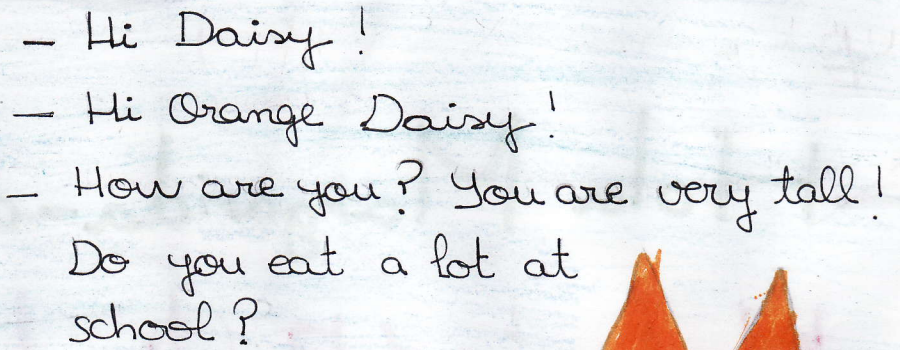 – Hi Daisy !
– Hi Orange Daisy !
– How are you ? You are very tall !
Do you eat a lot at
school ?